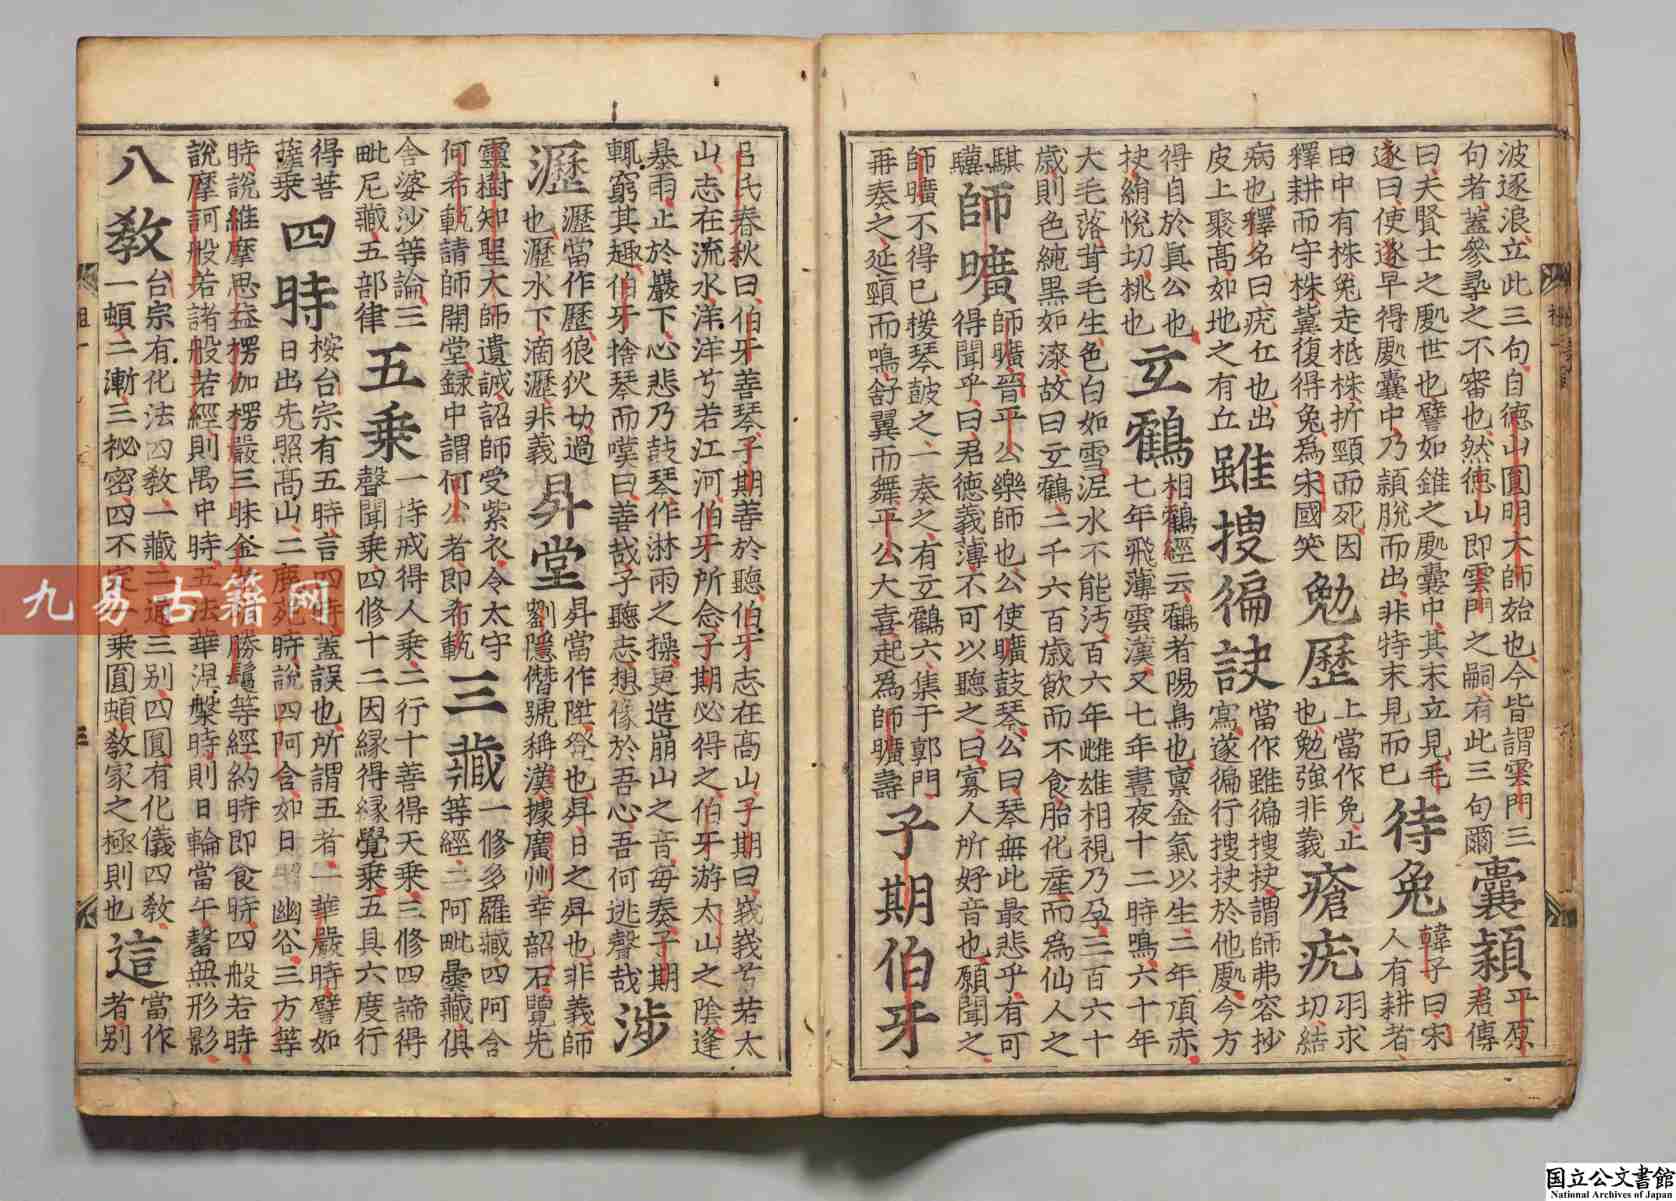 波逐浪立此三句自德山圓明大師始也今皆謂雲門三
句者蓋參尋之不審也然德山即雲門之嗣有此三句爾
囊穎
平原
君傳
曰夫賢士之處世也譬如錐之處囊中其末立見毛
遂曰使遂早得處囊中乃穎脫而出非特末見而已
待兔
韓子曰宋
人有耕者
田中有株兔走抵株折頸而死因
釋耕而守株冀復得兔為宋國笑
勉歷
上當作免止
也勉強非義
瘡疣
羽求
切結
病也釋名曰疣仕也出
皮上聚高如地之有丘
雖搜徧訣
當作雖徧搜抉謂師弗容抄
寫遂徧行搜抉於他處今方
得自於真公也
抉綃悅切挑也
玄鶴
相鶴經云鶴者陽鳥也稟金氣以生二年頂赤
七年飛薄雲漢又七年晝夜十二時鳴六十年
大毛落茸毛生色白如雪泥水不能汚百六年雌雄相視乃孕三百六十
歲則色純黑如漆故曰玄鶴二千六百歲飲而不食胎化產而為仙人之
騏
驥
師曠
師曠晉平公樂師也公使曠鼓琴公曰琴無此最悲乎有可
得聞乎曰君德義薄不可以聽之曰寡人所好音也願聞之
師曠不得已援琴鼓之一奏之有玄鶴六集于郭門
再奏之延頸而鳴舒翼而舞平公大喜起為師曠壽
子期伯牙
呂氏春秋曰伯牙善琴子期善於聽伯牙志在高山子期曰峩峩兮若太
山志在流水洋洋兮若江河伯牙所念子期必得之伯牙游太山之陰逢
暴雨止於巖下心悲乃鼓琴作淋雨之操更造崩山之音每奏子期
輒窮其趣伯牙捨琴而嘆曰善哉子聽志想像於吾心吾何逃聲哉
涉
瀝
瀝當作歷狼狄切過
也瀝水下滴瀝非義
昇堂
昇當作陞登也昇日之昇也非義師
劉隱僭號稱漢據廣州幸韶石覽先
靈樹知聖大師遺誡詔師受紫衣令太守
何希範請師開堂錄中謂何公者即希範
三藏
一修多羅藏四阿含
等經二阿毗曇藏俱
舍婆沙等論三
毗尼藏五部律
五乘
一持戒得人乘二行十善得天乘三修四諦得
聲聞乘四修十二因緣得緣覺乘五具六度行
得菩
薩乘
四時
桉台宗有五時言四時蓋誤也所謂五者一華嚴時譬如
日出先照高山二鹿苑時說四阿含如日幽谷三方等
時說維摩思益楞伽楞嚴三昧金勝鬘等經約時即食時四般若時
說摩訶般若諸般若經則禺中時五法華涅槃時則日輪當午罄無形影
八教
台宗有化法四教一藏二通三別四圓有化儀四教
一頓二漸三祕密四不定乘圓頓教家之極則也
這
當作
者別
祖一
三
九易古籍网
国立公文書館
National Archives of Japan